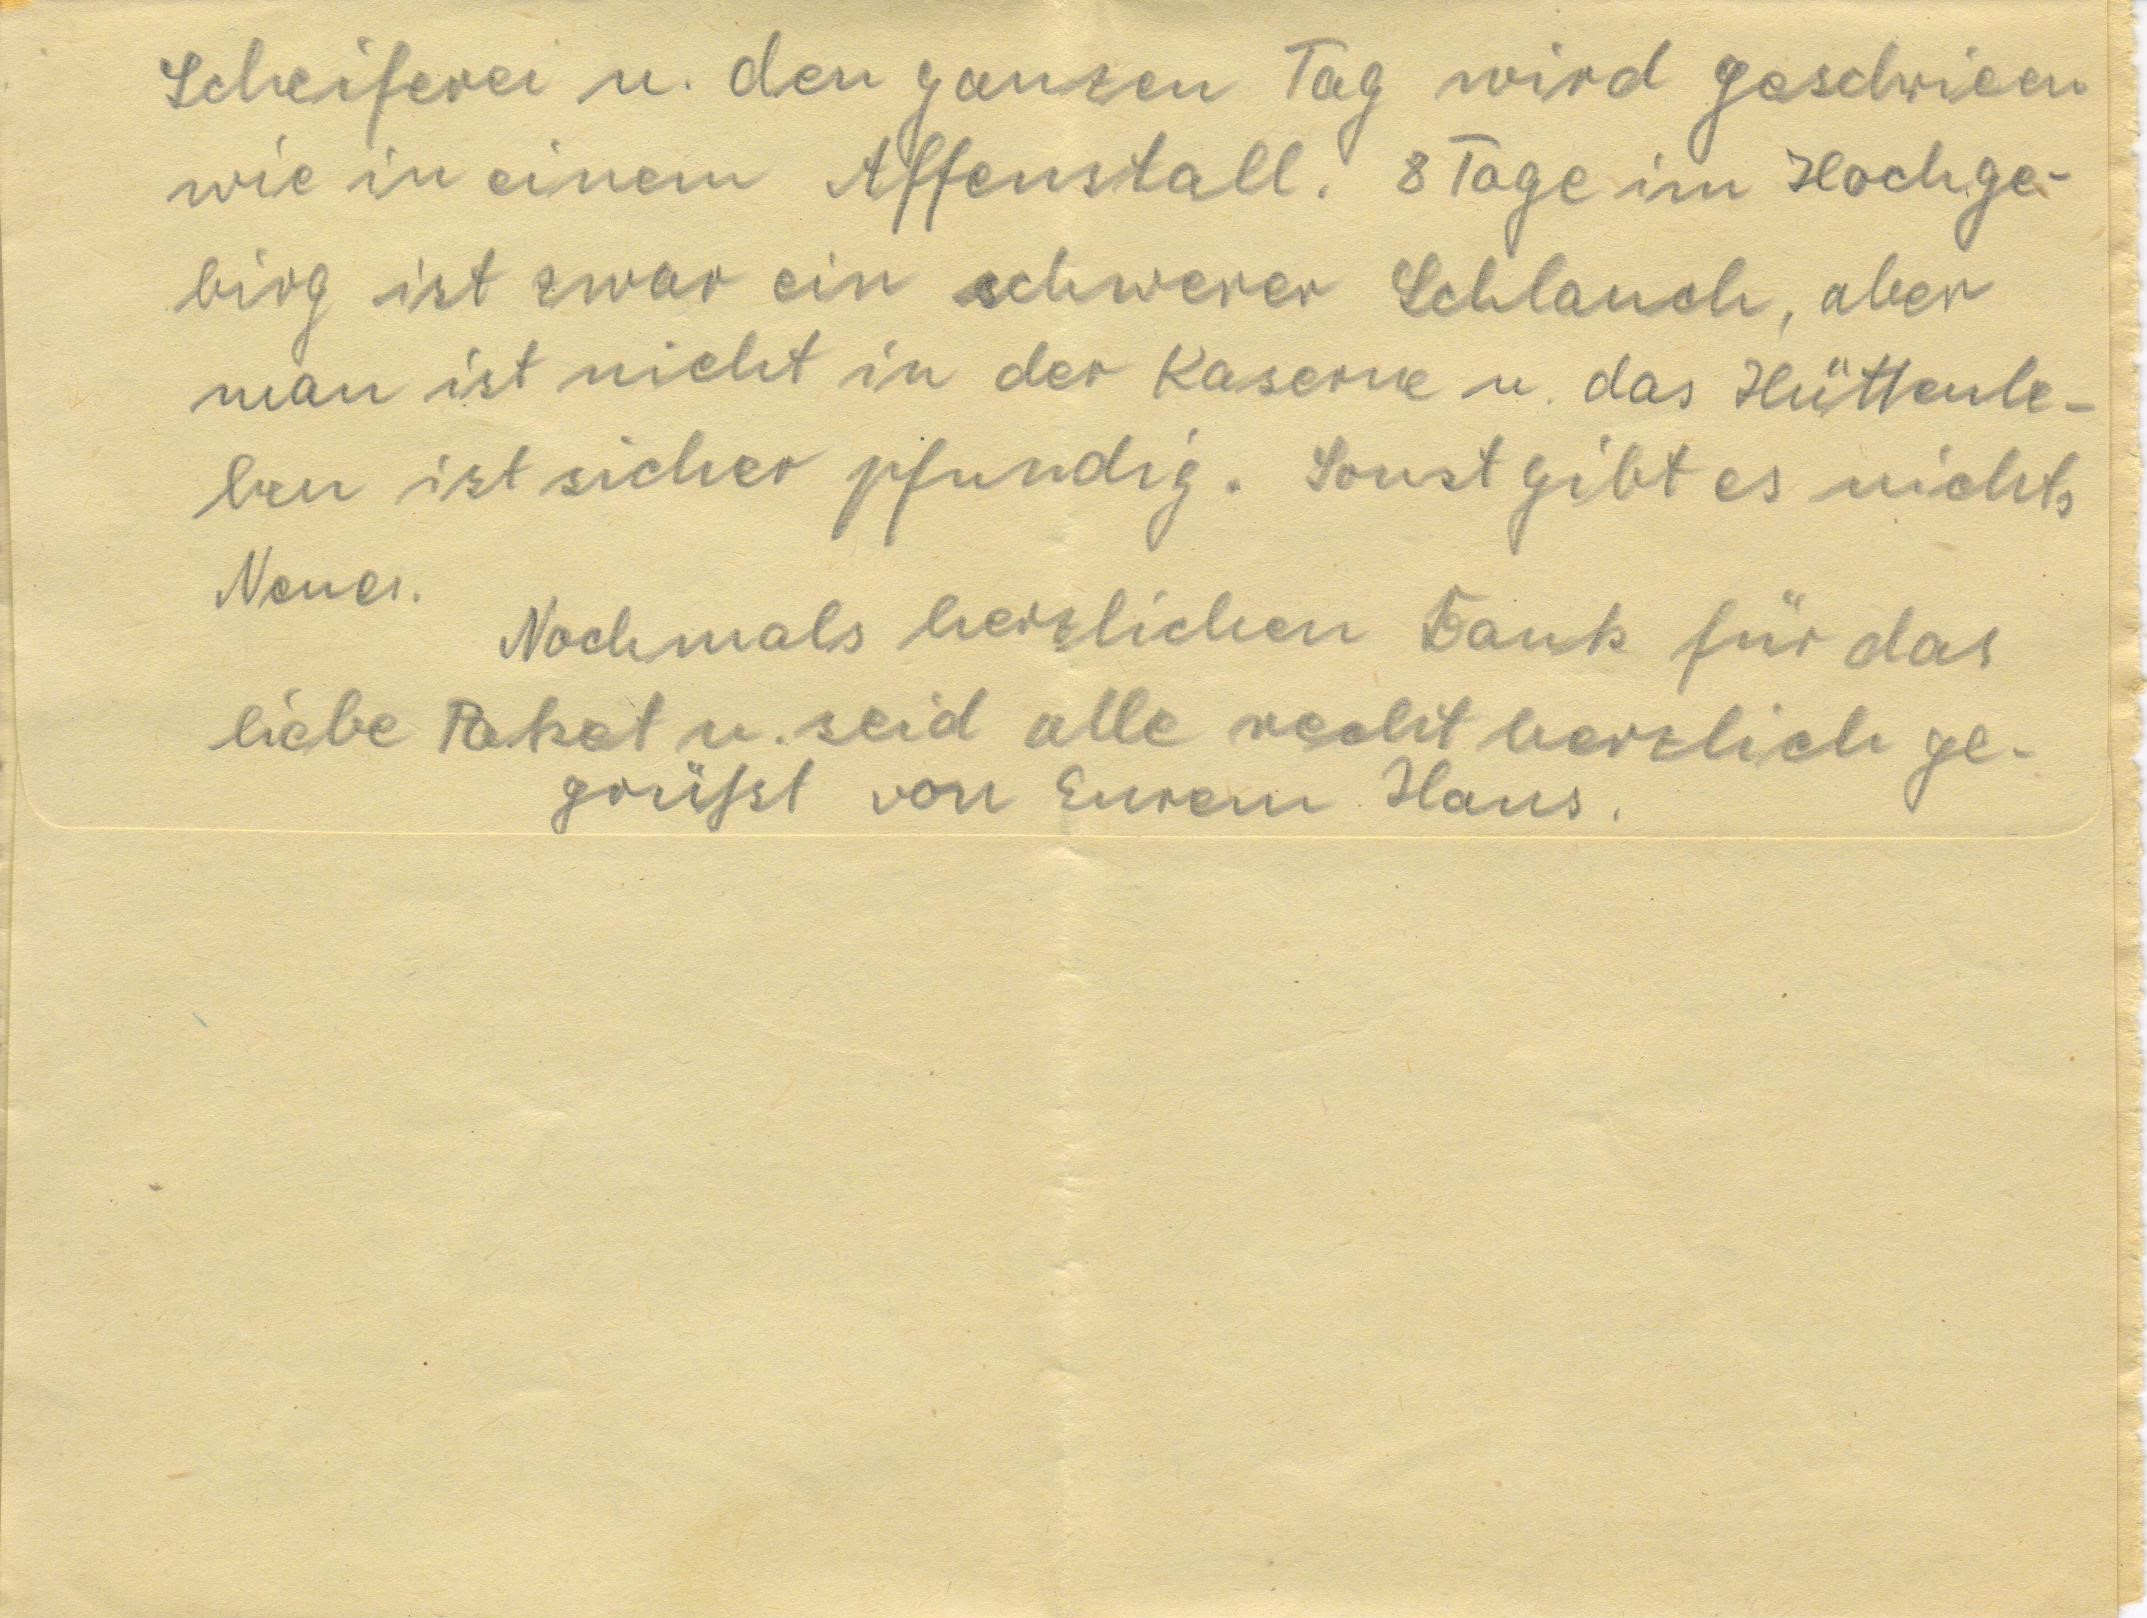 Schleiferei u. den ganzen Tag wird geschrieen
wie in einem Affenstall. 8 Tage im Hochge-
birg ist zwar ein schwerer Schlauch, aber
man ist nicht in der Kaserne u. das Hüttenle-
ben ist sicher pfundig. Sonst gibt es nichts
Neues.
Nochmals herzlichen Dank für das
liebe Paket u. seid alle recht herzlich ge-
grüßt von Eurem Hans.